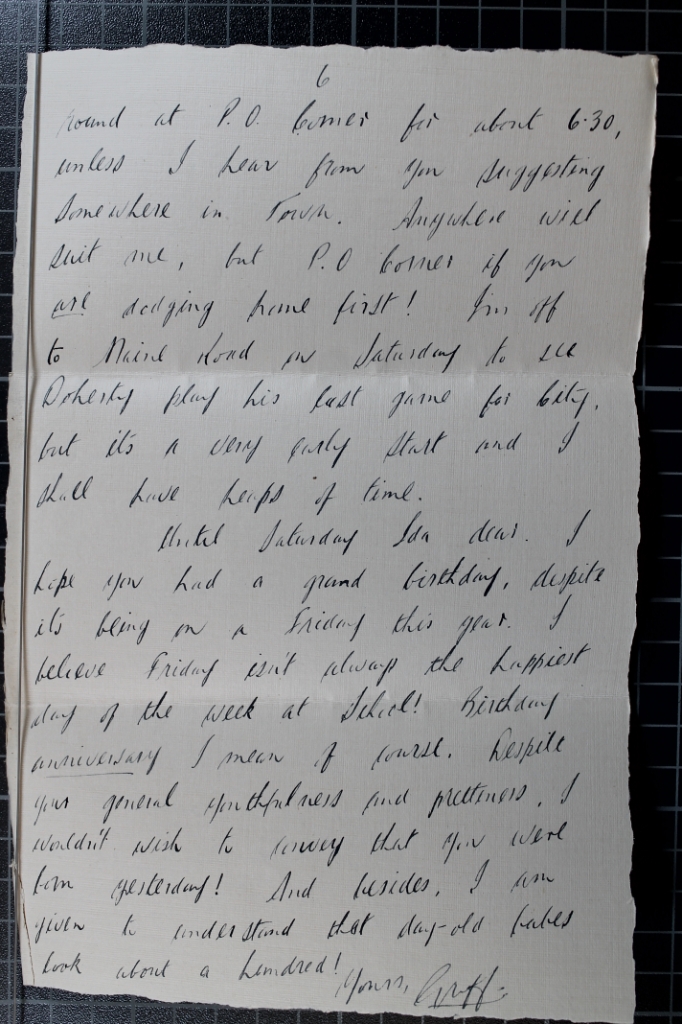 6
round at P.O. Corner for about 6.30,
unless I hear from you suggesting
somewhere in Town. Anywhere will
suit me, but P.O Corner if you
are dodging home first! I'm off
to Maine Road on Saturday to see
Doherty play his last game for City,
but it's a very early start and I
shall have heaps of time.
Until Saturday Ida dear. I
hope you had a grand birthday, despite
it's being on a Friday this year. I
believe Friday isn't always the happiest
day of the week at School! Birthday
anniversary I mean of course. Despite
your general youthfulness and prettiness, I
wouldn't wish to convey that you were
born yesterday! And besides, I am
given to understand that day-old babes
look about a hundred!
Yours, Griff.